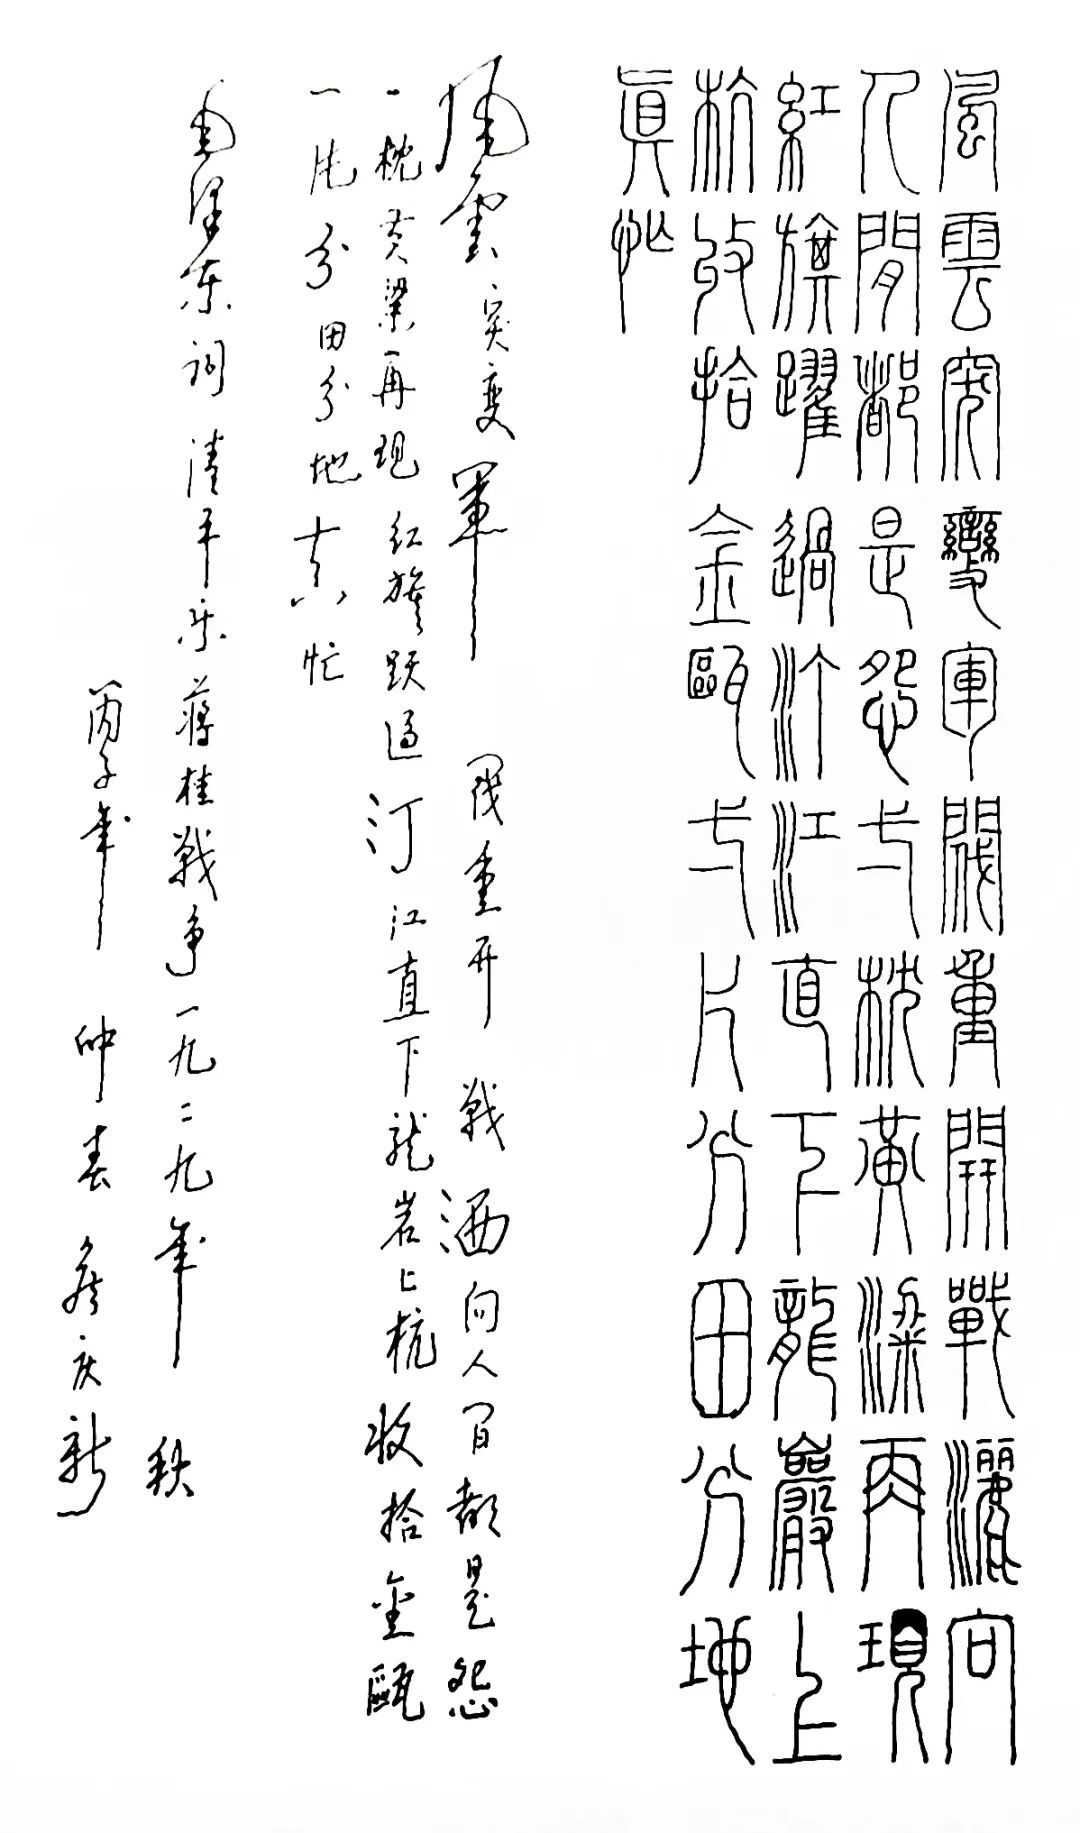 風雲突變軍閥重開戰灑向
人間都是怨弌枕黃粱再現
紅旗躍過汀江直下龍巖上
杭收拾金甌弌片分田分地
眞忙
风雲突变軍阀重开戰洒向人间都是怨
一枕黄粱再现红旗跃过汀江直下龙岩上杭收拾金瓯
一片分田分地真忙
毛泽东词清平乐蒋桂戰争一九二九年秋
丙子年仲春庆新